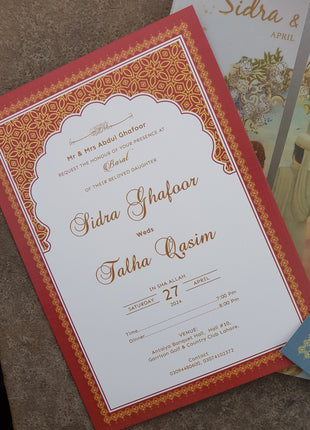 Sidra &
APRIL
Mr & Mrs Abdul Ghafoor
REQUEST THE HONOUR OF YOUR PRESENCE AT
Barat
OF THEIR BELOVED DAUGHTER
Sidra Ghafoor
Weds
Talha Qasim
IN SHA ALLAH
SATURDAY 27 APRIL
2024
Time 7:00 Pm
Dinner 8:00 Pm
VENUE:
Antalya Banquet Hall, Hall #10,
Garrison Golf & Country Club Lahore.
Contact